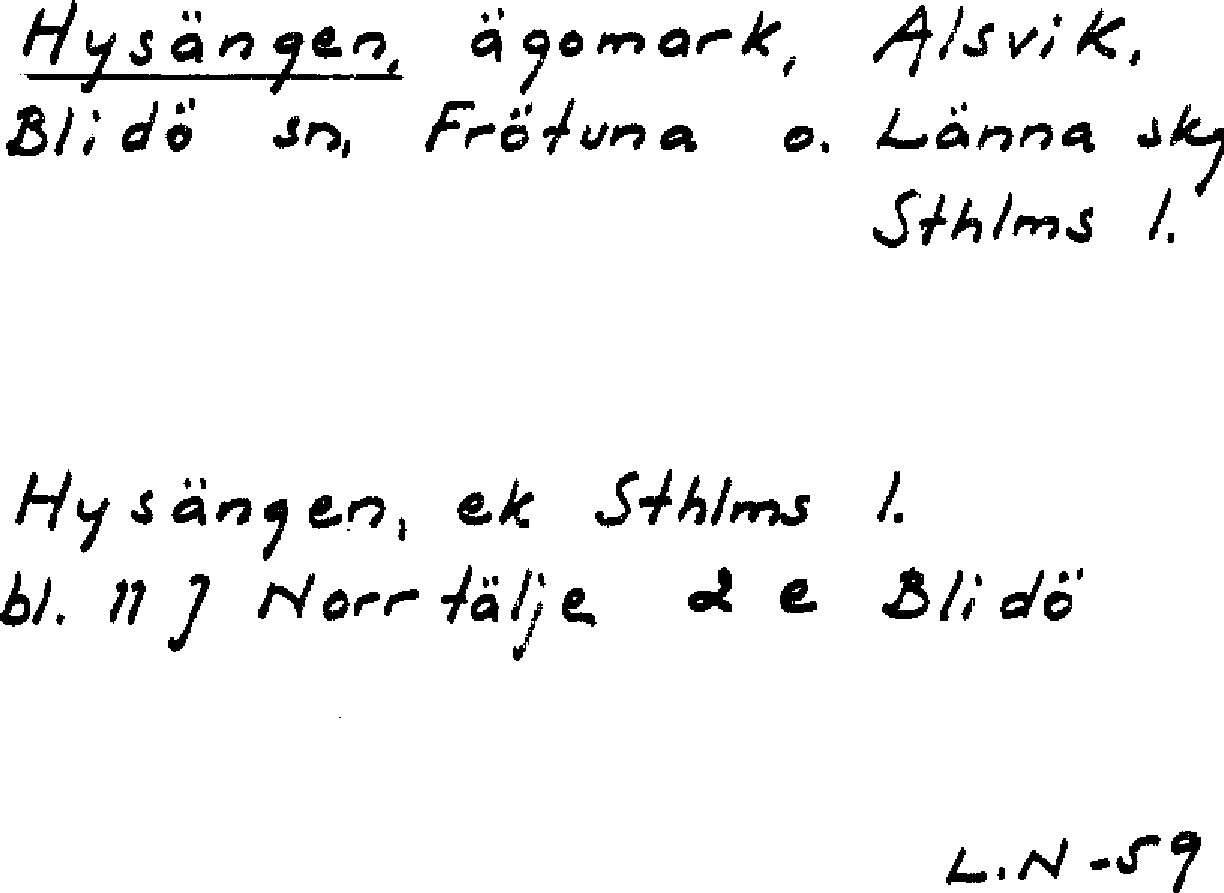 Hysängen, ägomark, Alsvik.
Blidö sn, Frötuna o. Länna skg
Sthlms l.
Hysängen, ek Sthlms l.
bl. 11 J Norrtälje 2 e Blidö
L.N -59